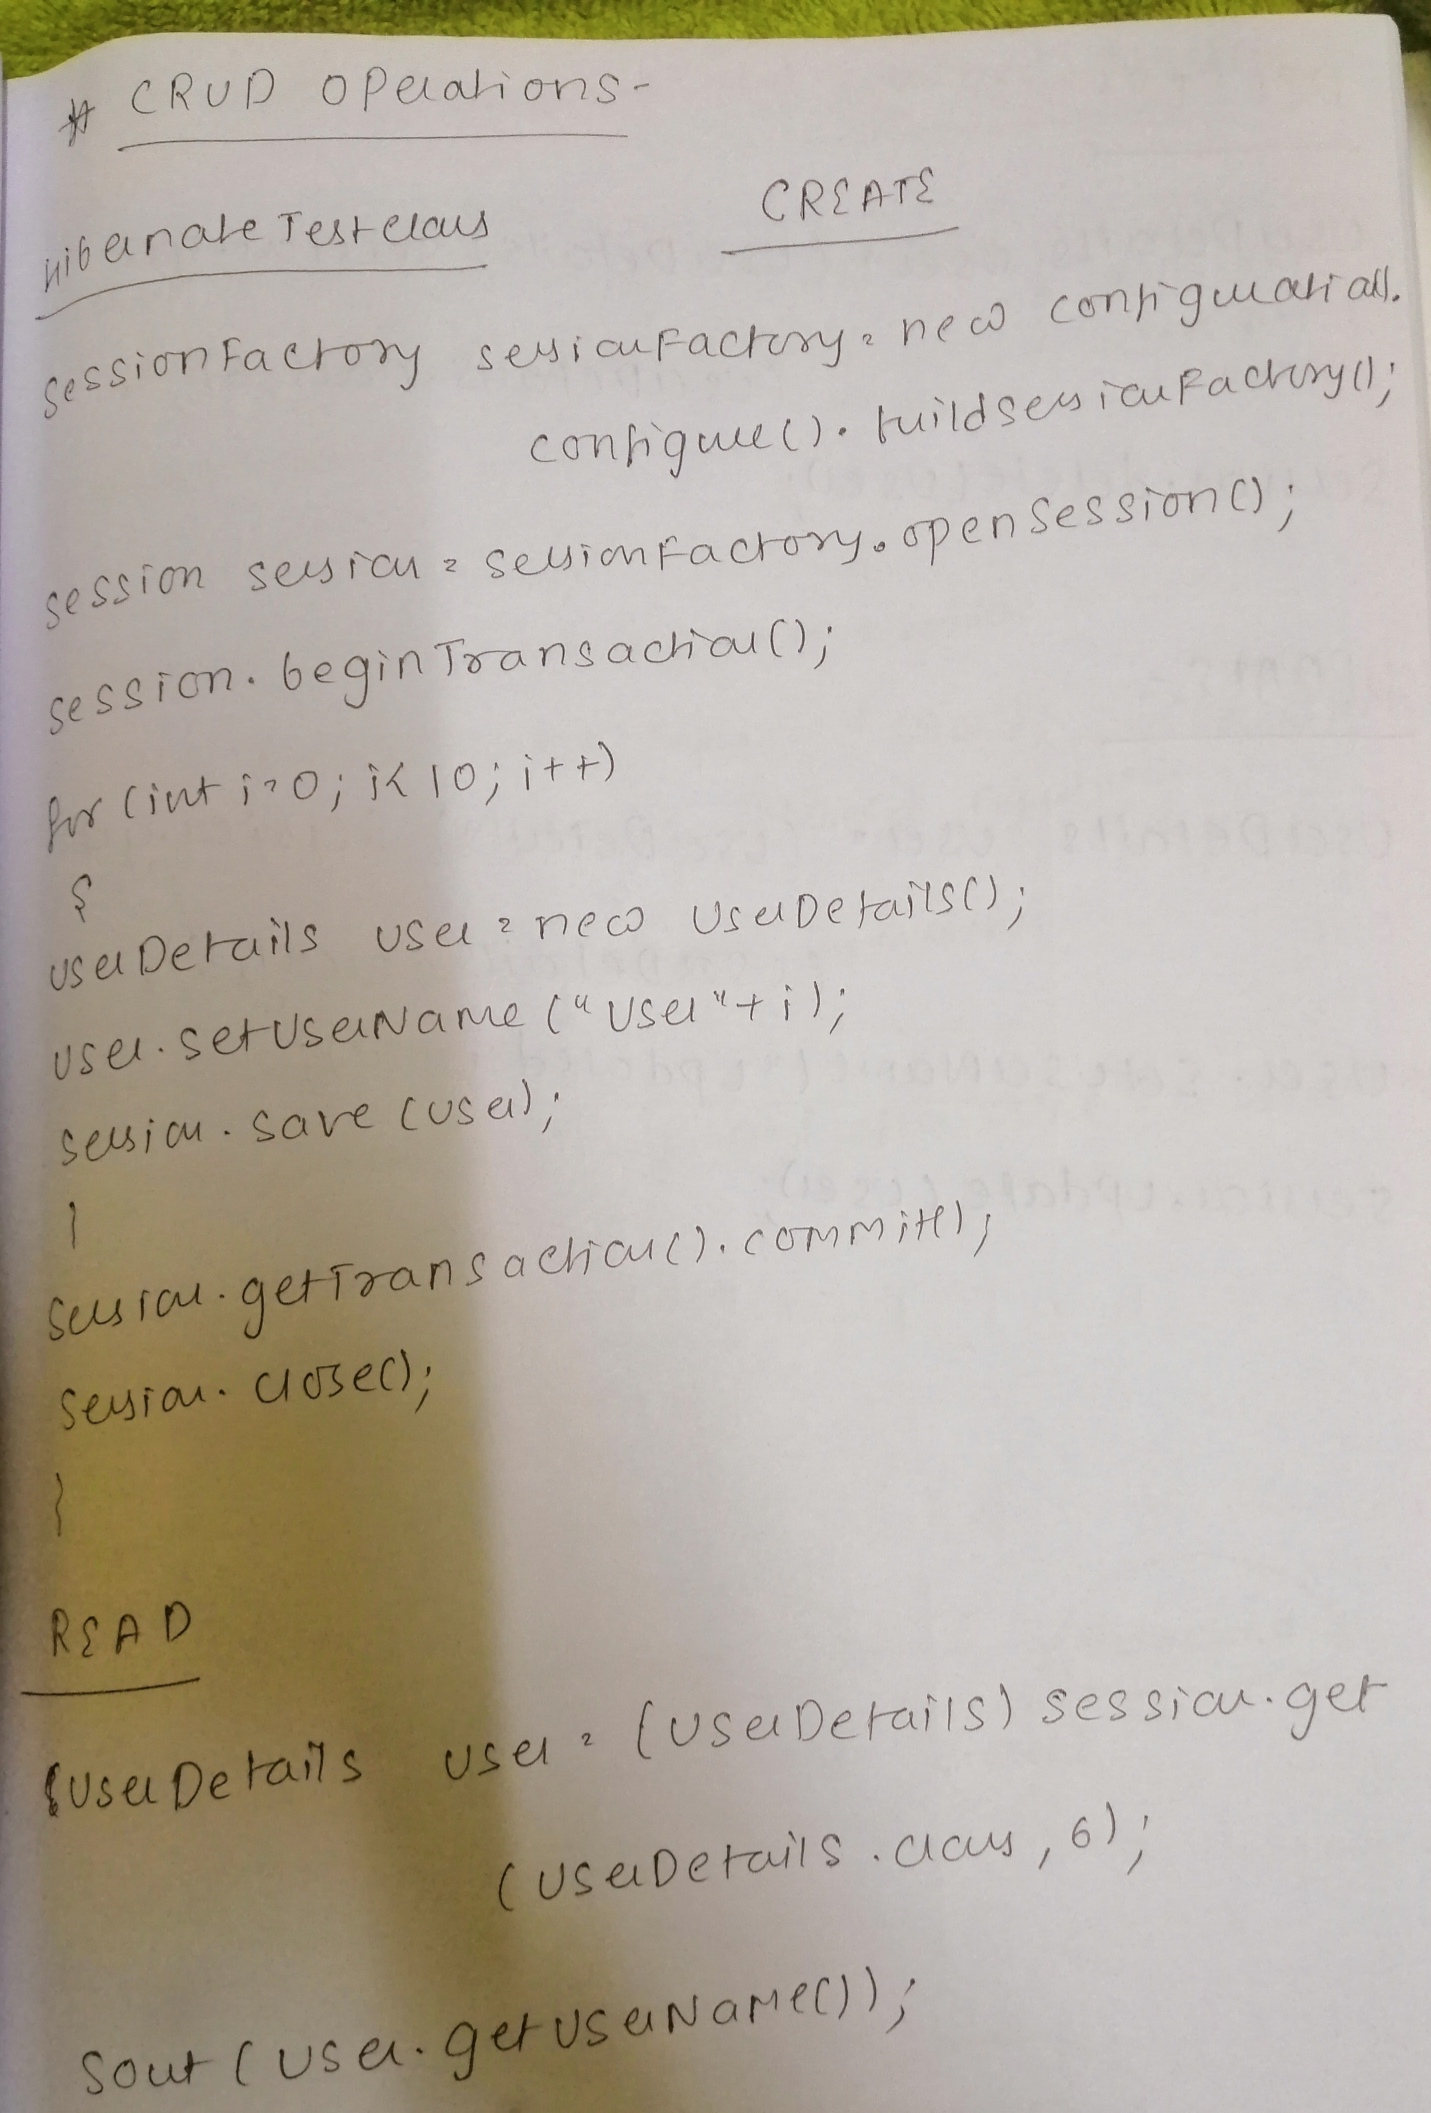 # CRUD Operations-
Hibernate Test class
CREATE
SessionFactory sessionFactory = new Configuration().
configure(). buildSessionFactory();
session session = sessionFactory.openSession();
session. beginTransaction();
for (int i=0; i<10; i++)
{
UserDetails user = new UserDetails();
user. setUserName ("User"+i);
session. save (user);
}
session. getTransaction(). commit();
session. close();
}
READ
UserDetails user = (UserDetails) session. get
(UserDetails. class, 6);
Sout (user. getUserName());